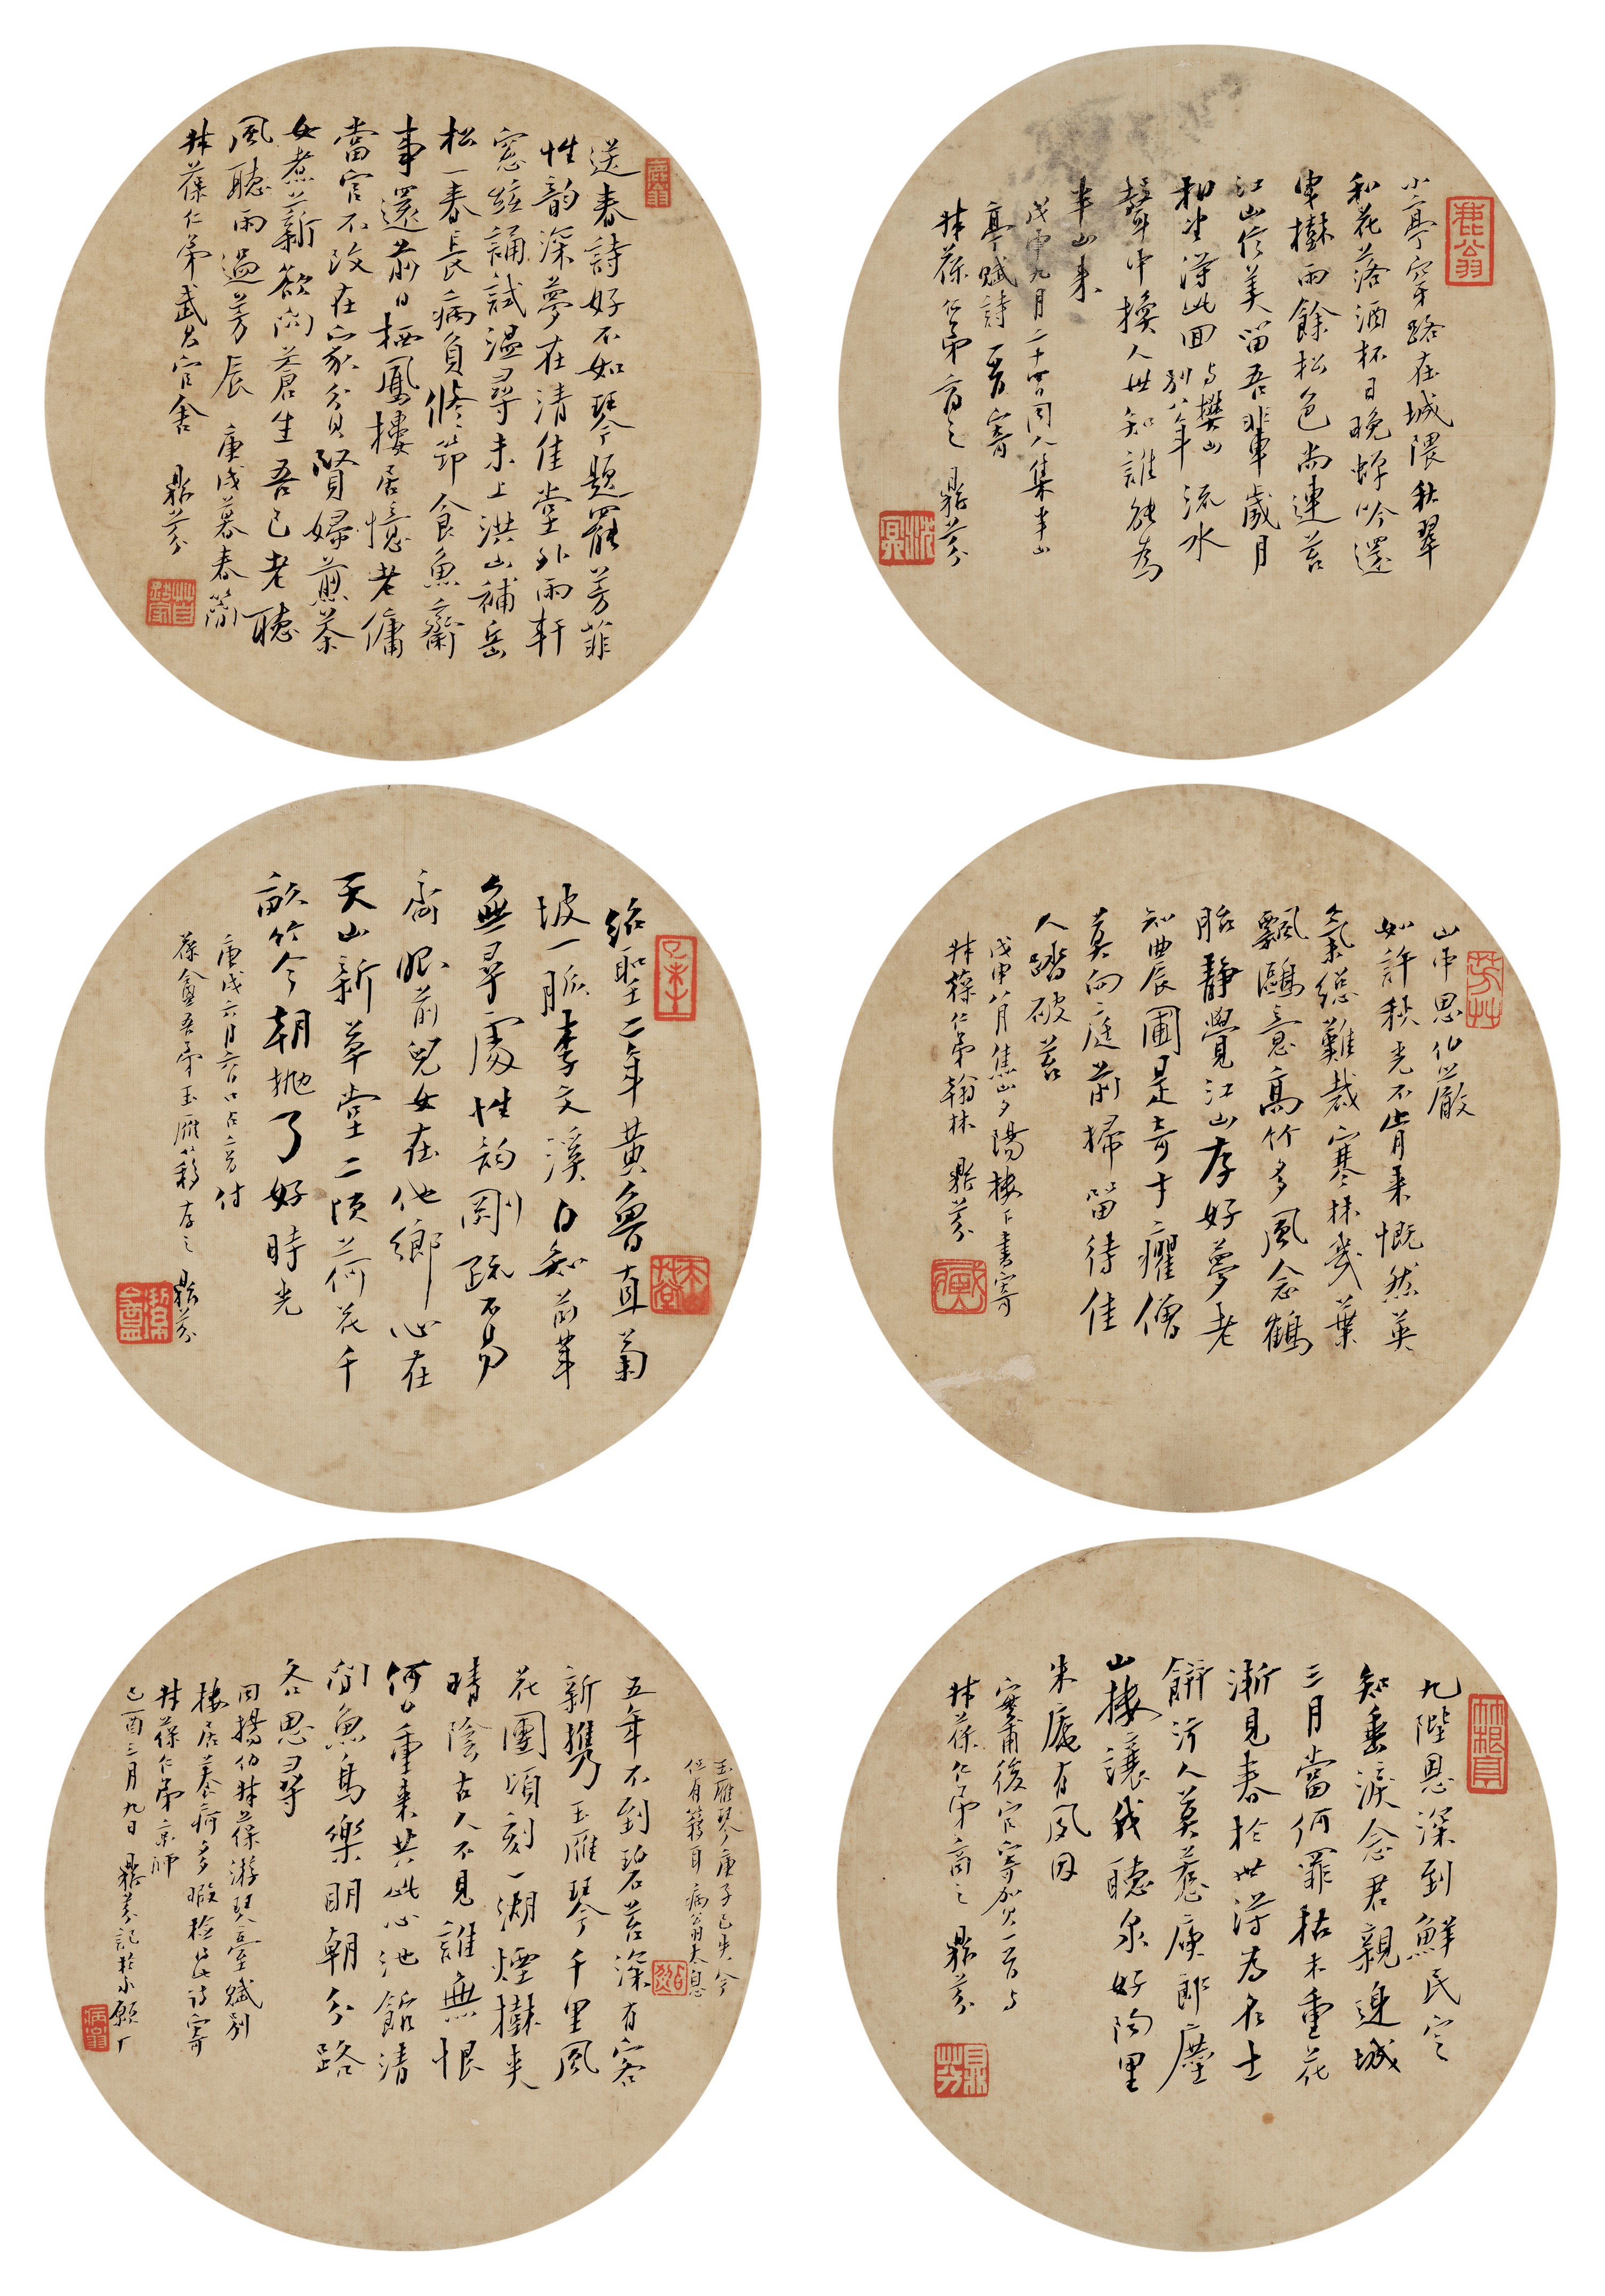 小亭穿路在城隈秋翠
和花落酒杯日晚蟬吟還
半樹雨餘松色尚連苔
江山信美留吾輩歲月
初安得此回與樊山別八年流水
聲中換人世知誰能為
半山來
戊申九月二十四日同人集半山
亭賦詩一首寄
牀葆仁弟
鼎芬
送春詩好不如琴題罷芳菲
性韵深夢在清佳堂外雨軒
窓絃誦試溫尋未上洪山補岳
松一春長病負脩節食魚齋
事還前日栖鳳樓居憶老傭
當官不改在家貧賢婦煎茶
女煮薪欲問蒼生吾已老聽
風聽雨過芳辰 庚戌暮春簡
牀葆仁弟武昌官舍 鼎芬
山中思仙嚴
如許秋光不肯來慨然英
氣總難裁寒林幾葉
飄鷗意高竹多風念鶴
胎靜覺江山存好夢老
知農圃是奇才癯僧
莫向庭前掃留待佳
人踏破苔
戊申八月焦山夕陽樓下書寄
牀葆仁弟翰林 鼎芬
紹聖二年黃魯直菊
坡一脈李文溪自知前輩
無尋處性韵剛疏不易
齊眼前兒女在他鄉心在
天山新草堂二頃荷花千
畝竹今朝拋了好時光
庚戌六月六日口占二首付
葆盦吾弟玉雁簃存之 鼎芬
九陛恩深到鮮民定
知垂淚念君親邊城
三月當何罪枯木重花
漸見春於世得為名士
餅污人莫惹庾郎塵
山樓讓我聽泉好陶里
朱庵有夙因
實甫後官寧加公一首與
牀葆仁弟商之 鼎芬
玉雁琴庚子已失今
但有簃耳 病翁太息
五年不到碧苔深有客
新攜玉雁琴千里風
花團頃刻一湖煙樹夾
晴陰古人不見誰無恨
何日重來共此心池館清
閒魚鳥樂明朝分路
各思尋
同揚伯牀葆游琴臺賦別
樓居養疴多暇檢此詩寄
牀葆仁弟京師
己酉三月九日 鼎芬記於小願廠